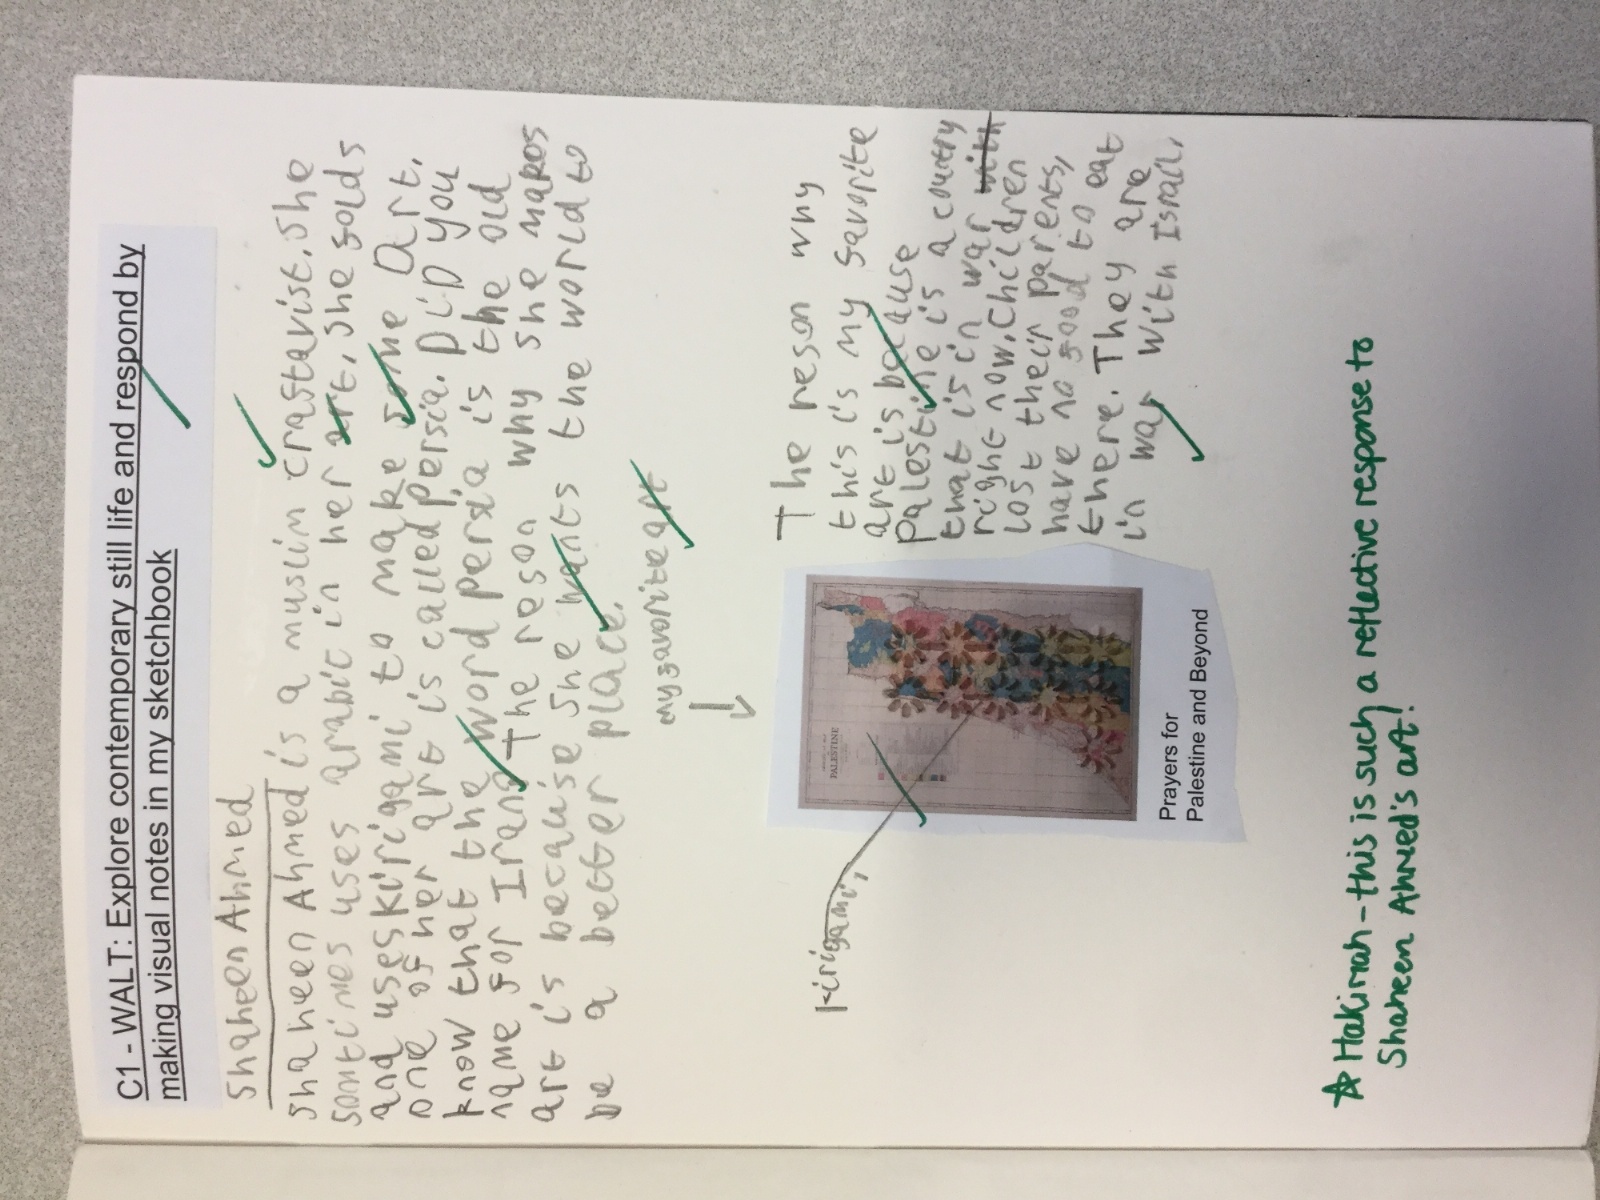 C1 - WALT: Explore contemporary still life and respond by
making visual notes in my sketchbook
Shaheen Ahmed
Shaheen Ahmed is a muslim craftavist. She
somtimes uses arabic in her art, she folds
and uses kirigami to make some art.
one of her art is called persia. DiD you
know that the word persia is the old
name for Iran. The reson why she makes
art is because she wants the world to
be a better place.
my favorite art
The reson why
this is my favorite
art is because
Palestine is a country
that is in war with
right now. Children
lost their parents,
have no food to eat
there. They are
in war with Israil.
kirigami,
PALESTINE
Prayers for
Palestine and Beyond
Hakimah - this is such a reflective response to
Shaheen Ahmed's art!